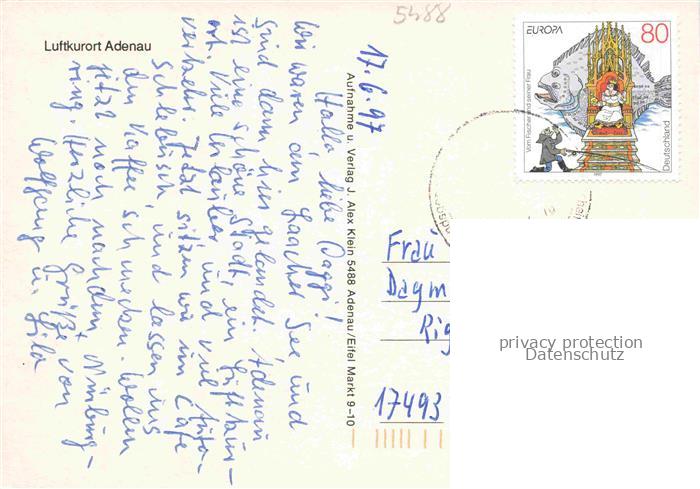 5488
Luftkurort Adenau
17.6.97
Hallo liebe Daggi!
Wir waren am Laacher See und
sind dann hier gelandet. Adenau
ist eine schöne Stadt, ein Luftkur-
ort. Viele Urlauber und viel Auto-
verkehr. Jetzt sitzen wir im Café
Schlebusch, und lassen uns
den Kaffee schmecken. Wollen
jetzt noch nach dem Nürburg-
ring. Herzliche Grüße von
Wolfgang u.
Aufnahme u. Verlag J. Alex Klein 5488 Adenau/Eifel Markt 9–10
EUROPA
80
Vom Fischer und seiner Frau
Deutschland
1997
Frau
Dagm
Rig
17493
privacy protection
Datenschutz